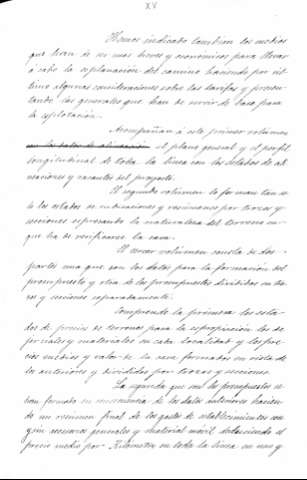 XV
Hemos indicado tambien los medios
que han de ser mas breves y economicos para llevar
á cabo la esplanación del camino haciendo por úl-
timo algunas consideraciones sobre las tarifas y presen-
tando las generales que han de servir de base para
la esplotación.
Acompañan á este primer volúmen
el plano general y el perfil
longitudinal de toda la linea con los estados de ali-
neaciones y rasantes del proyecto.
El segundo volúmen lo forman tan so-
lo los estados de cubicaciones y resúmenes por trozos y
secciones espresando la naturaleza del terreno en
que ha de verificarse la
El tercer volúmen consta de dos
partes una que son los datos para la formacion del
presupuesto y otra de los presupuestos divididos en tro-
zos y secciones separadamente.
Comprende la primera los esta-
dos de precios de terrenos para la espropiación los de
jornales y materiales en cada localidad y los pre-
cios medios y valor de la formados en vista de
los anteriores y divididos por trozos y secciones.
La segunda que son los presupuestos se
han formado en consecuencia de los datos anteriores hacien-
do un resúmen final de los gastos de establecimiento con
accesorios generales y material móvil deduciendo el
precio medio por Kilómetro en toda la linea